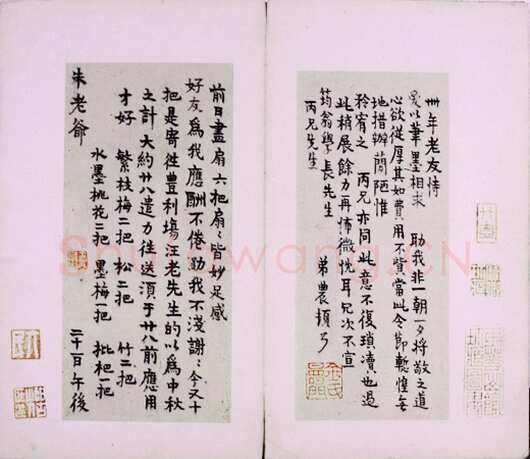 卅年老友情
以筆墨相求 助我非一朝一夕將敬之道
心欲從厚其如費用不貲當此令節暫惶無
地措辦简陋惟
矜宥之 丙兄亦同此意不復瑣瀆也過
此稍展餘力再佈微忱耳兄次不宣
筠翁學長先生
丙兄先生
弟農頓
前日畫扇六把扇〻皆妙足感
好友為我應酬不倦助我不淺謝〻今又十
把是寄往豐利場汪老先生的以為中秋
之計大約廿八遣力往送須于廿八前應用
才好 繁枝梅二把 松二把 竹二把
水墨桃花二把 墨梅一把 枇杷一把
朱老爺
二十一日午後